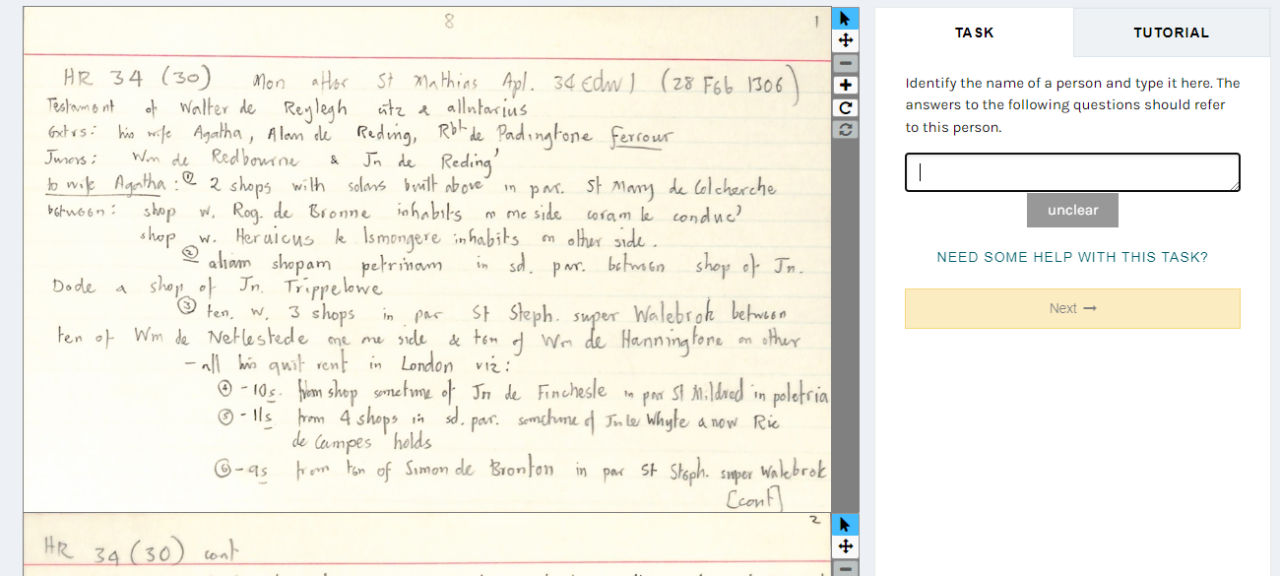 8
1
HR 34 (30) Mon after St Mathias Apl. 34 Edw I (28 Feb 1306)
Testament of Walter de Reylegh
Extrs: his wife Agatha, Alan de Reding, Rbt de Padingtone ferrour
Jurors: Wm de Redbourne & Jn de Reding'
to wife Agatha: ① 2 shops with solars built above in par. St Mary de Colcherche
between: shop w. Rog. de Bronne inhabits on one side coram le conduc'
shop w. Henricus le Ismongere inhabits on other side.
② aliam shopam petrinam in sd. par. between shop of Jn.
Dode & shop of Jn. Trippelowe
③ ten. w. 3 shops in par St Steph. super Walebrok between
ten of Wm de Netlestede one side & ten of Wm de Hanningtone on other
- all his quit rent in London viz:
④ - 10s. from shop sometime of Jn de Finchesle in par St Mildred in poletria
⑤ - 11s from 4 shops in sd. par. sometime of Jn le Whyte & now Ric
de Campes holds
⑥ - 9s from ten of Simon de Bronton in par St Steph. super Walebrok
[cont]
2
HR 34 (30) cont
TASK
TUTORIAL
Identify the name of a person and type it here. The
answers to the following questions should refer
to this person.
unclear
NEED SOME HELP WITH THIS TASK?
Next →